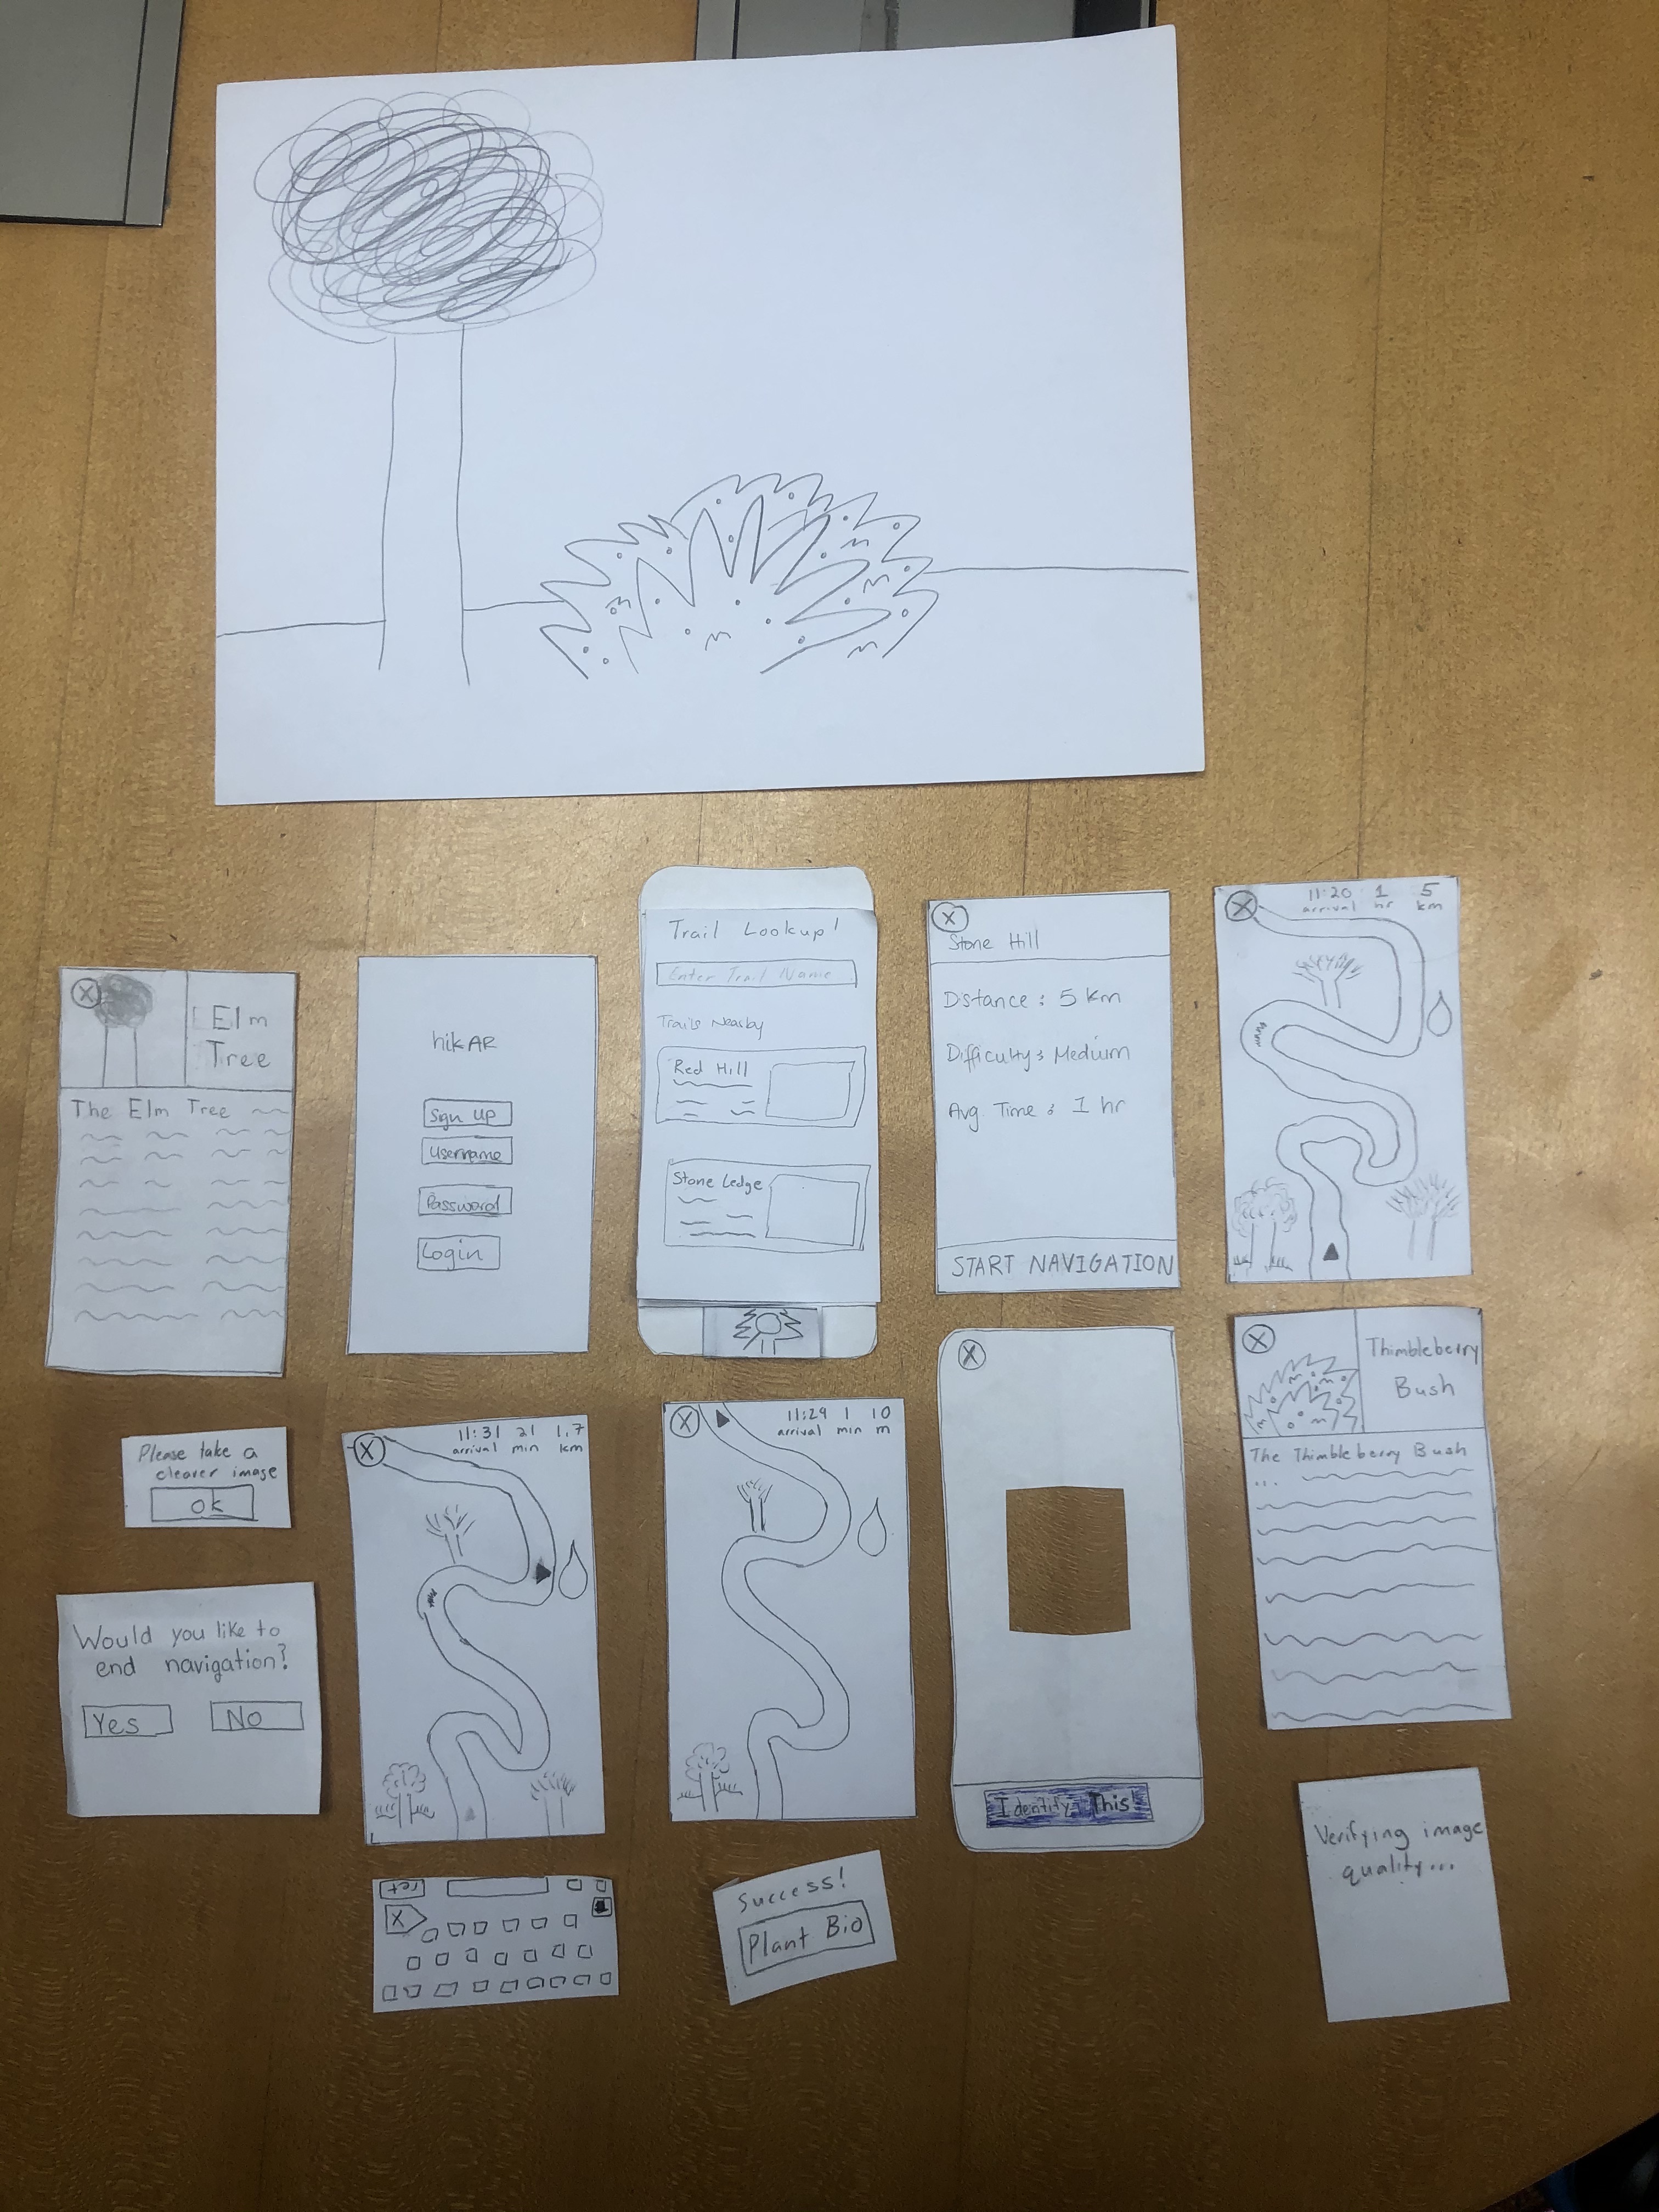 Elm
Tree
The Elm Tree
hikAR
Sign Up
Username
Password
Login
Trail Lookup!
Enter Trail Name
Trails Nearby
Red Hill
Stone Ledge
X
Stone Hill
Distance : 5 km
Difficulty : Medium
Avg Time : 1 hr
START NAVIGATION
X
11:20 1 5
arrival hr km
Please take a
clearer image
Ok
Would you like to
end navigation?
Yes No
X
11:31 21 1.7
arrival min km
X
11:29 1 10
arrival min m
X
Identify This!
X
Thimbleberry
Bush
The Thimbleberry Bush
...
ret
X
Success!
Plant Bio
Verifying image
quality...